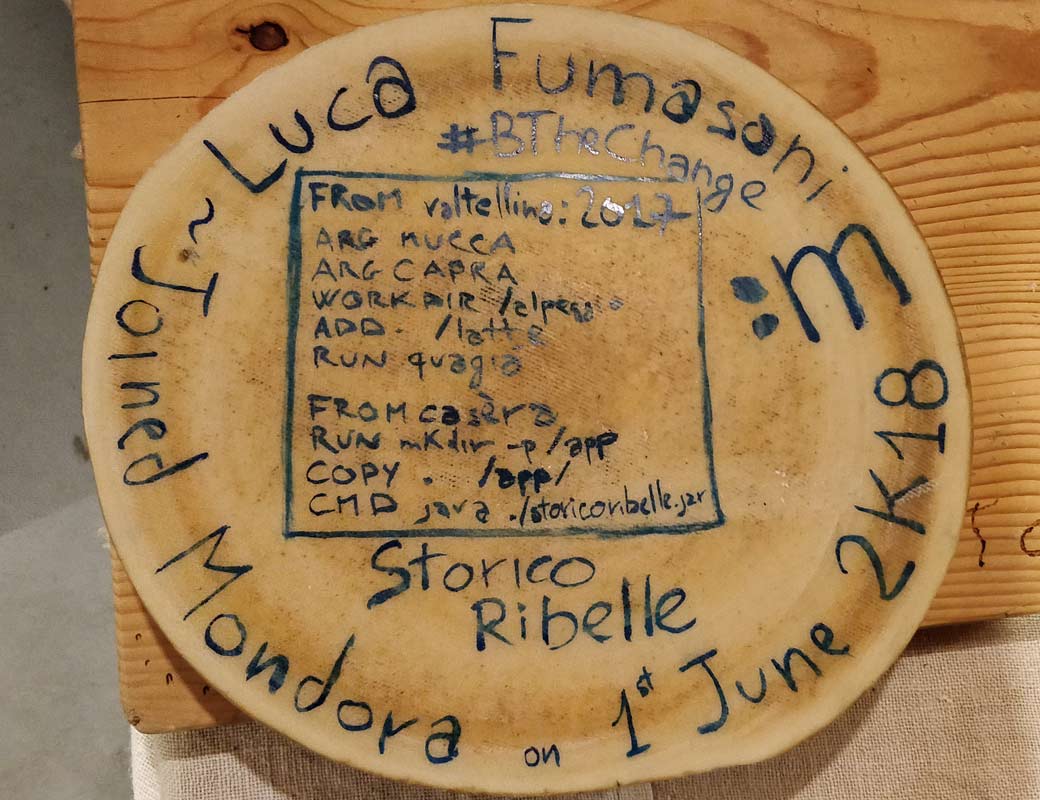 Luca Fumasoni
#BTheChange
:m
FROM valtellina:2017
ARG MUCCA
ARG CAPRA
WORKDIR /alpeggio
ADD . /latte
RUN quagia
FROM casèra
RUN mkdir -p /app
COPY . /app/
CMD java ./storicoribelle.jar
Storico
Ribelle
~ Joined Mondora on 1st June 2K18